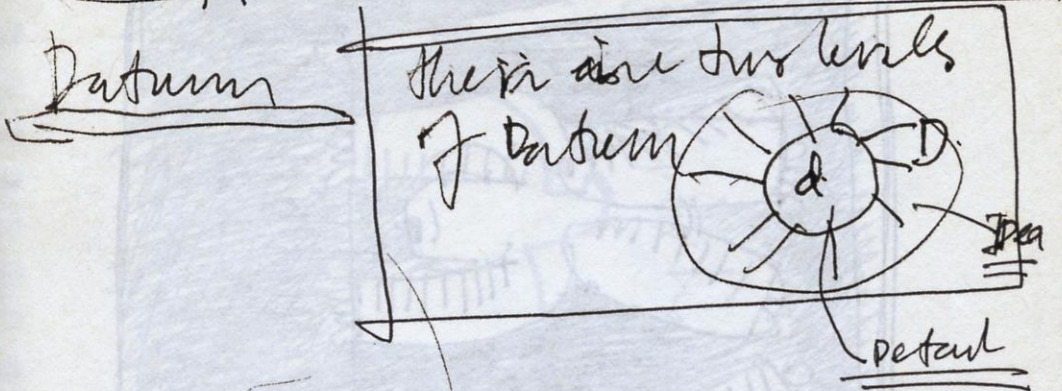 Datum
their are two levels
of Datum
d.
D.
Idea
Detail